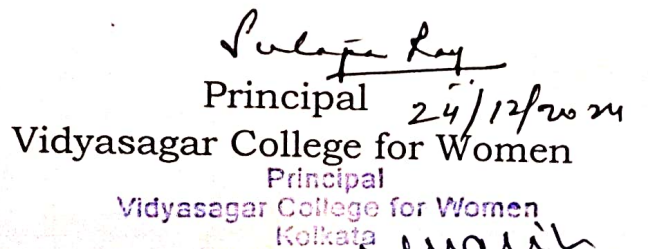 Principal 24/12/2024
Vidyasagar College for Women
Principal
Vidyasagar College for Women
Kolkata